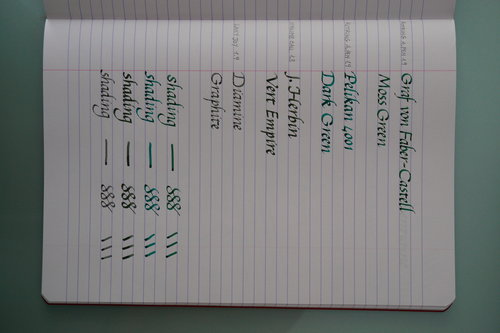 Graf von Faber-Castell
Moss Green
Pelikan 4001
Dark Green
J. Herbin
Vert Empire
Diamine
Graphite
shading
shading
shading
shading